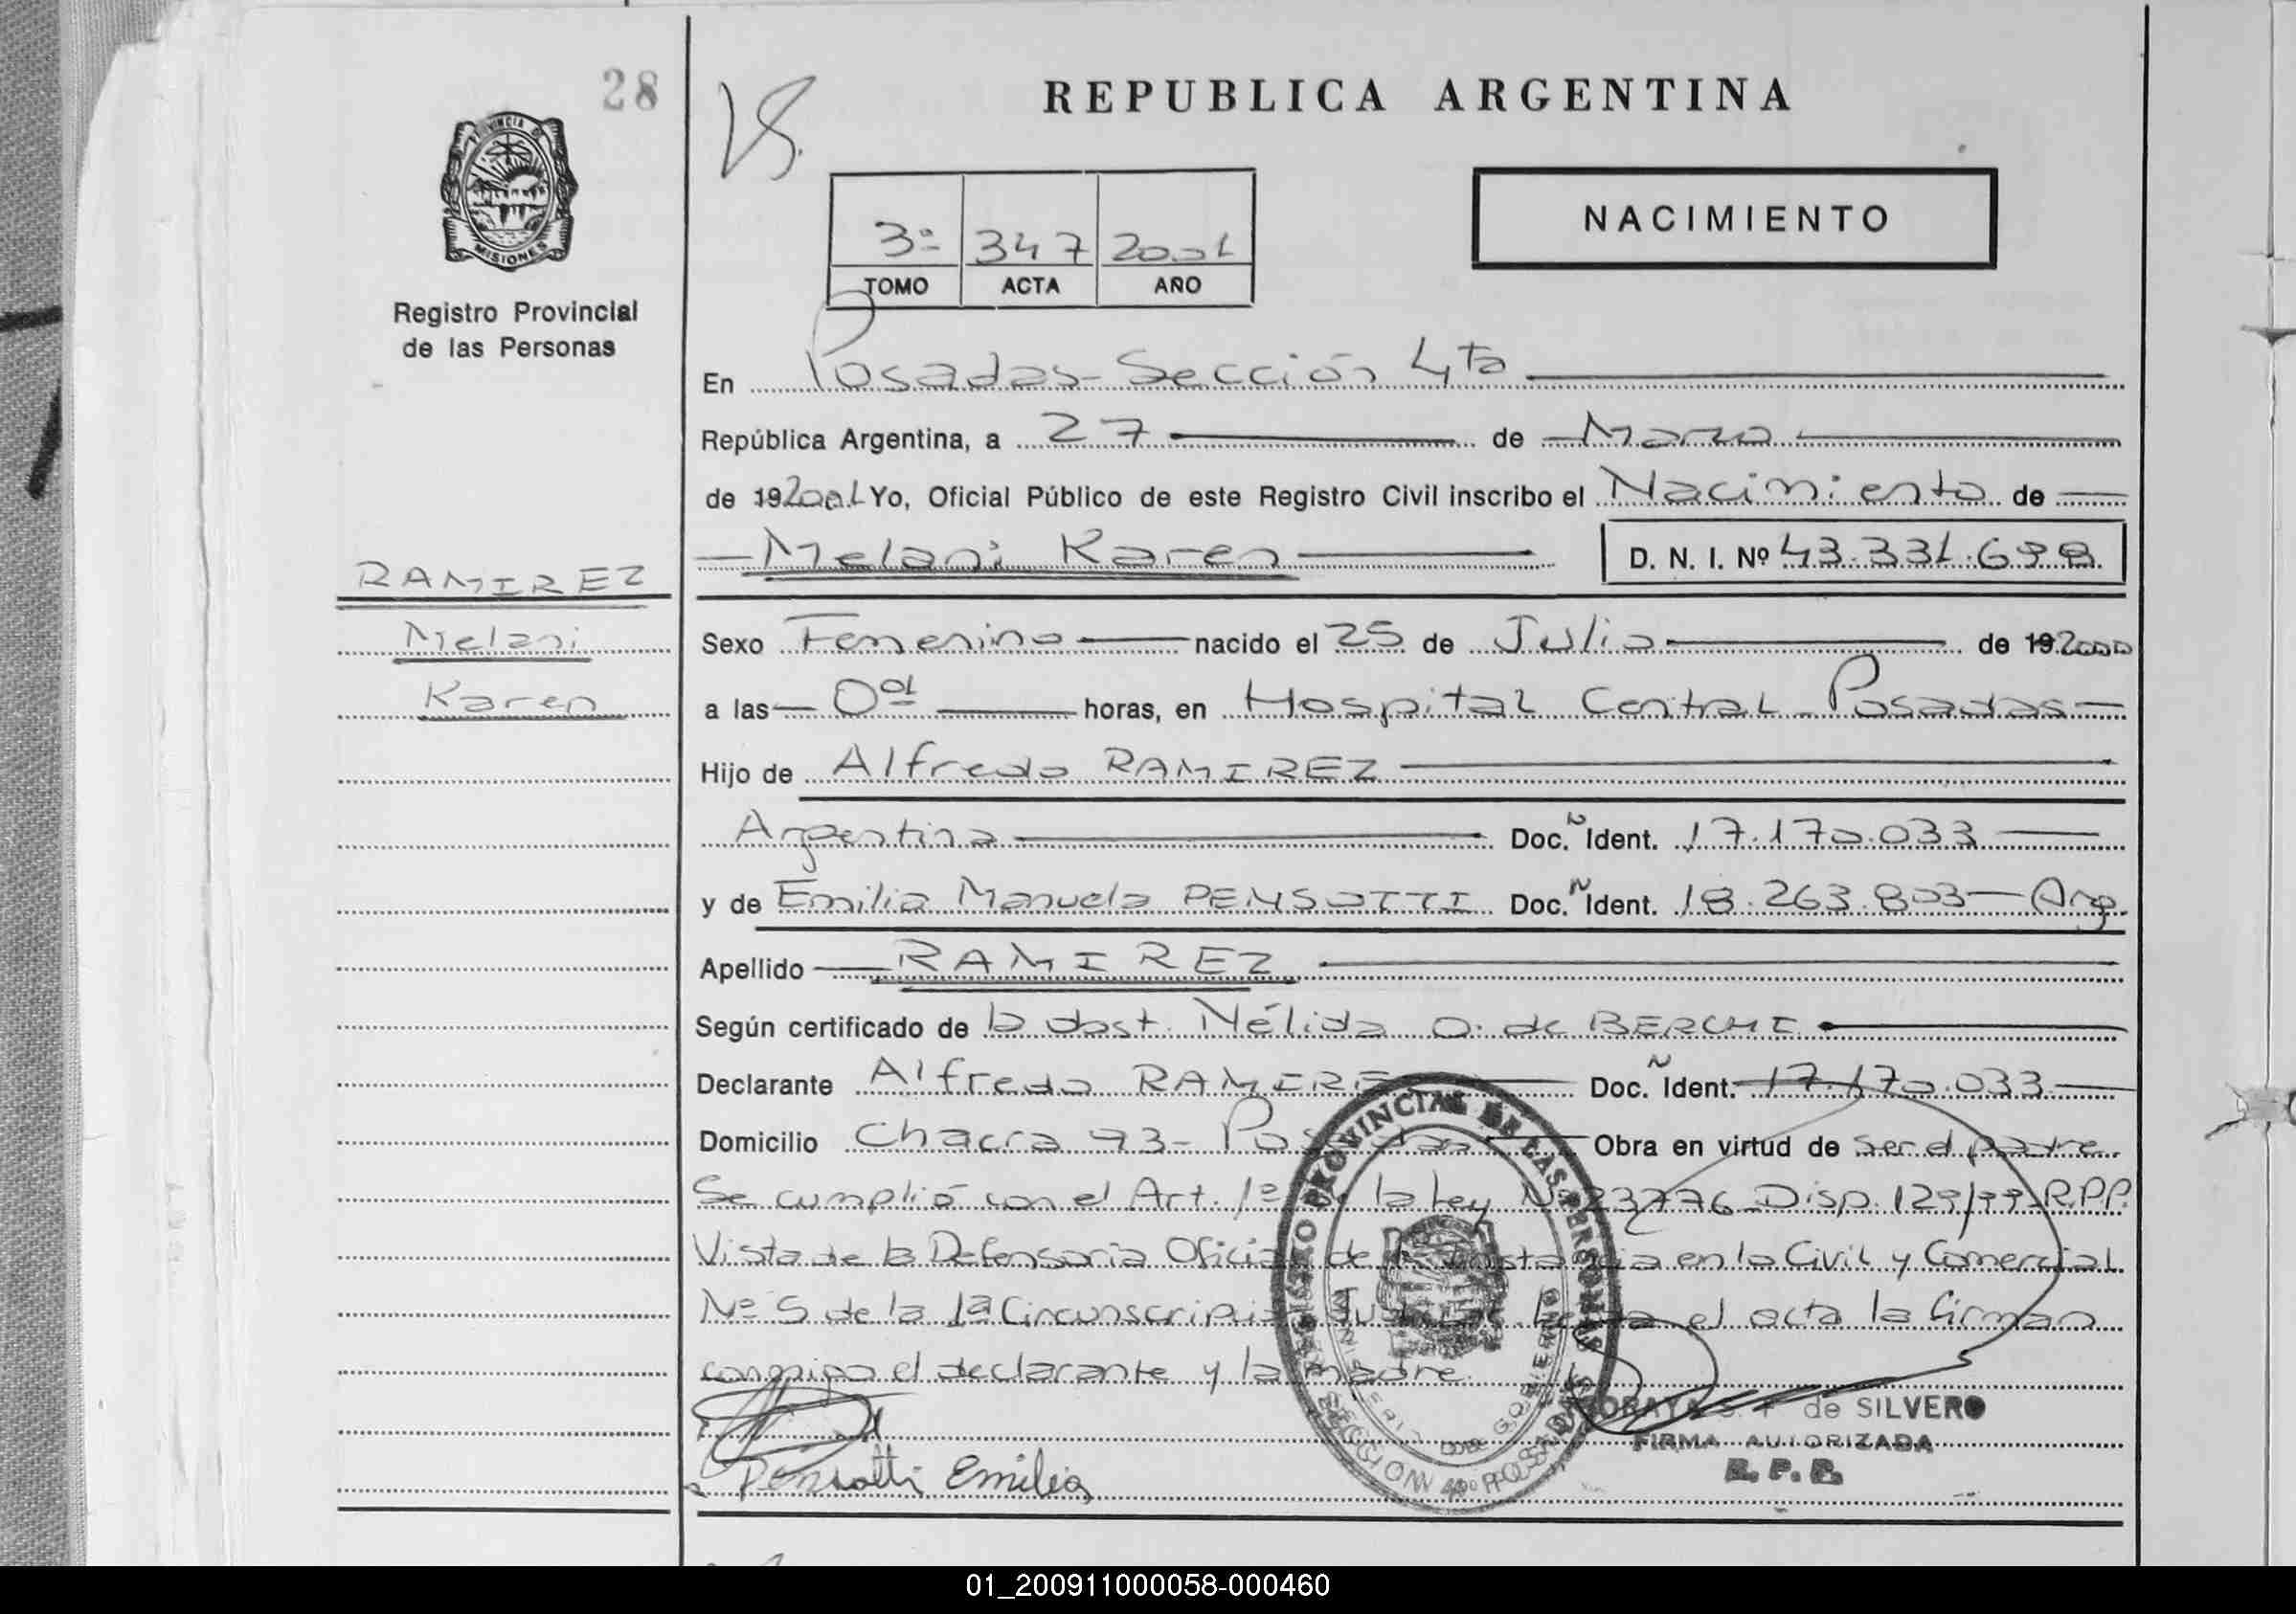 28
REPUBLICA ARGENTINA
PROVINCIA DE
MISIONES
Registro Provincial
de las Personas
NACIMIENTO
3º 347 2001
TOMO ACTA AÑO
En Posadas - Sección 4ta
República Argentina, a 27 de Marzo
de 192001 Yo, Oficial Público de este Registro Civil inscribo el Nacimiento de
Melani Karen D. N. I. Nº 43.331.698
RAMIREZ
Melani
Karen
Sexo Femenino nacido el 25 de Julio de 192000
a las 0 01 horas, en Hospital Central - Posadas
Hijo de Alfredo RAMIREZ
Argentina Doc. Ident. 17.170.033
y de Emilia Manuela PENSOTTI Doc. Ident. 18.263.803 - Arg.
Apellido RAMIREZ
Según certificado de la obst. Nélida O. de BERCHI
Declarante Alfredo RAMIRE Doc. Ident. 17.170.033
Domicilio Chacra 93 - Posadas Obra en virtud de ser el padre
Se cumplió con el Art. 1º de la Ley Nº 23776 - Disp. 129/99 - R.P.P.
Vista de la Defensoria Oficial de 1ª Instancia en lo Civil y Comercial
Nº 5 de la 1ª Circunscripción Judicial. Leida el acta la firman
conmigo el declarante y la madre.
REGISTRO PROVINCIAL DE LAS PERSONAS
MINISTERIO DE GOBIERNO
SECCION 4º POSADAS
SORAYA S. de SILVERO
FIRMA AUTORIZADA
R. P. P.
Pensotti Emilia
01_200911000058-000460